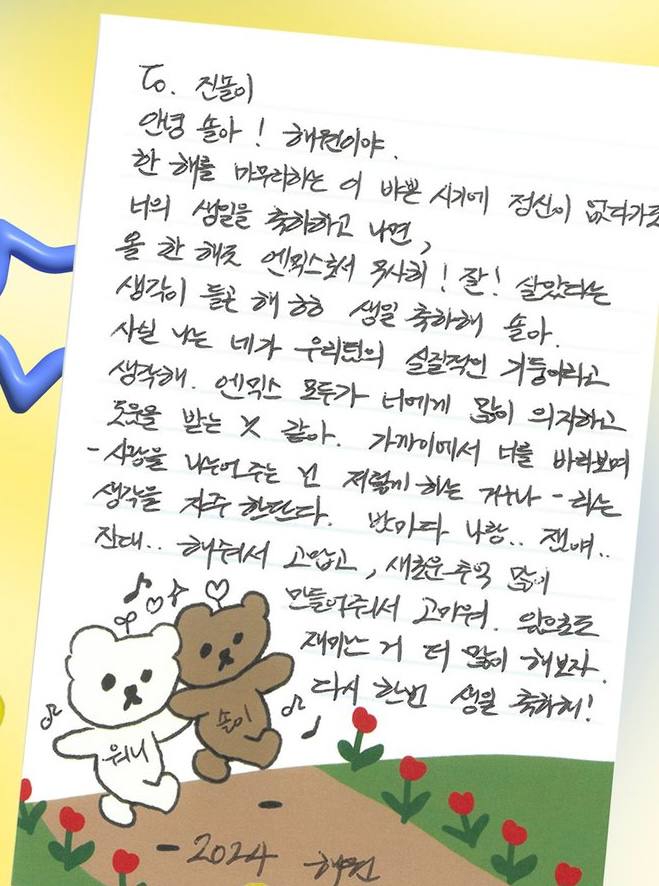 To. 진솔이
안녕 솔아! 해원이야.
한 해를 마무리하는 이 바쁜 시기에 정신이 없다가도
너의 생일을 축하하고 나면,
올 한 해도 엔믹스로서 무사히! 잘! 살았다는
생각이 들곤 해 ㅎㅎ 생일 축하해 솔아.
사실 나는 네가 우리팀의 실질적인 기둥이라고
생각해. 엔믹스 모두가 너에게 많이 의지하고
도움을 받는 것 같아. 가까이에서 너를 바라보며
- 사랑을 나누어주는 건 저렇게 하는 거구나 - 라는
생각을 자주 한단다. 밤마다 나랑.. 쟨얘..
잔대.. 해줘서 고맙고, 새로운 추억 많이
만들어줘서 고마워. 앞으로도
재미있는 거 더 많이 해보자.
다시 한번 생일 축하해!
워니
솔이
- 2024 해원